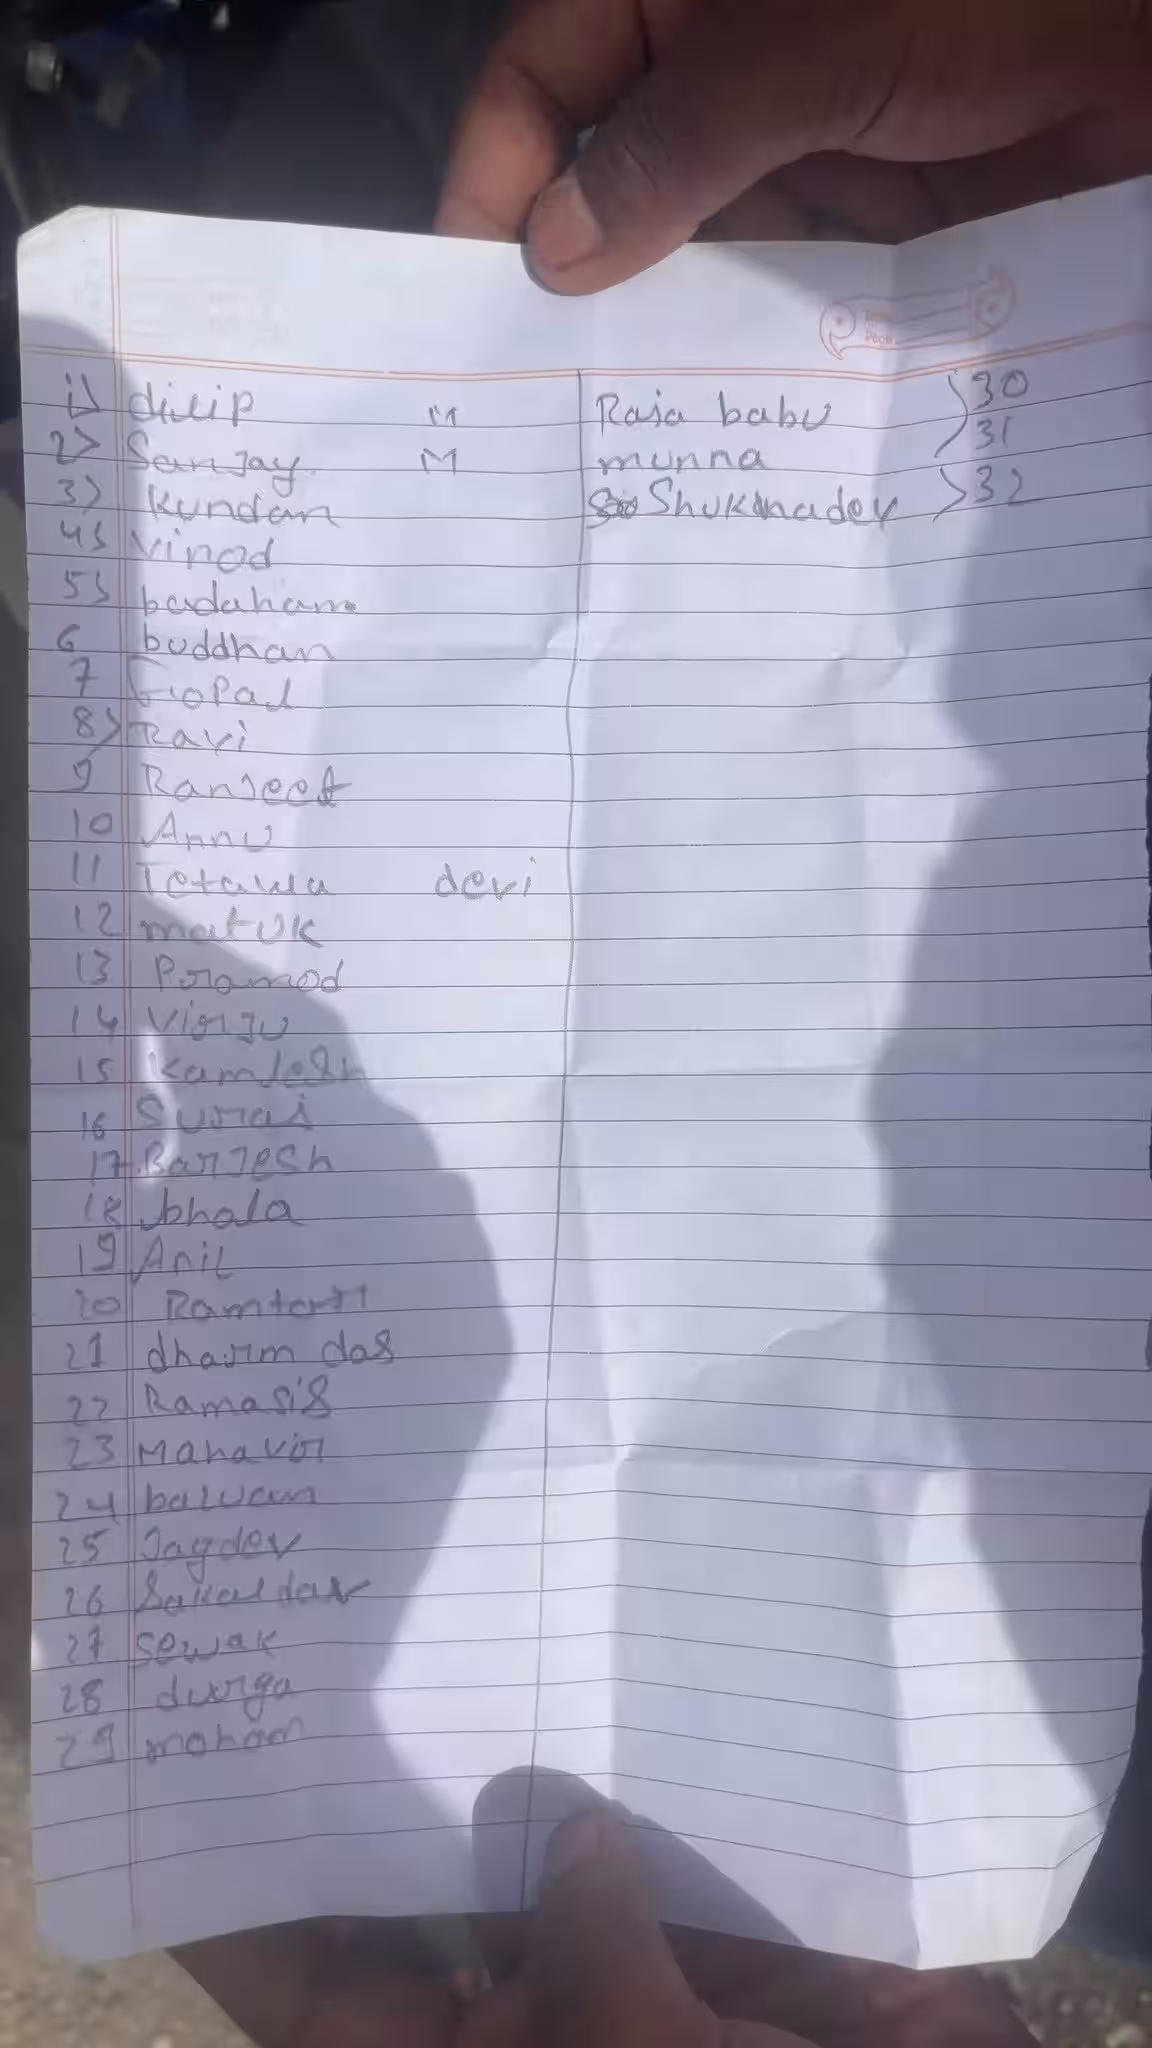 1) dilip M
2) Sanjay M
3) Kundan
4) Vinod
5) badaham
6 buddhan
7 GoPal
8) Ravi
9 Ranjeet
10 Annu
11 Tetawa devi
12 matuk
13 Pramod
14 Virju
15 Kamlesh
16 Suraj
17 Barjesh
18 bhola
19 Anil
20
21 dharm das
22 Ramasis
23 Mahavir
24 balwan
25 Jagdev
26 Sakaldas
27 sewak
28 durga
29 mohan
Raja babu 30
munna 31
Shukhadev 32